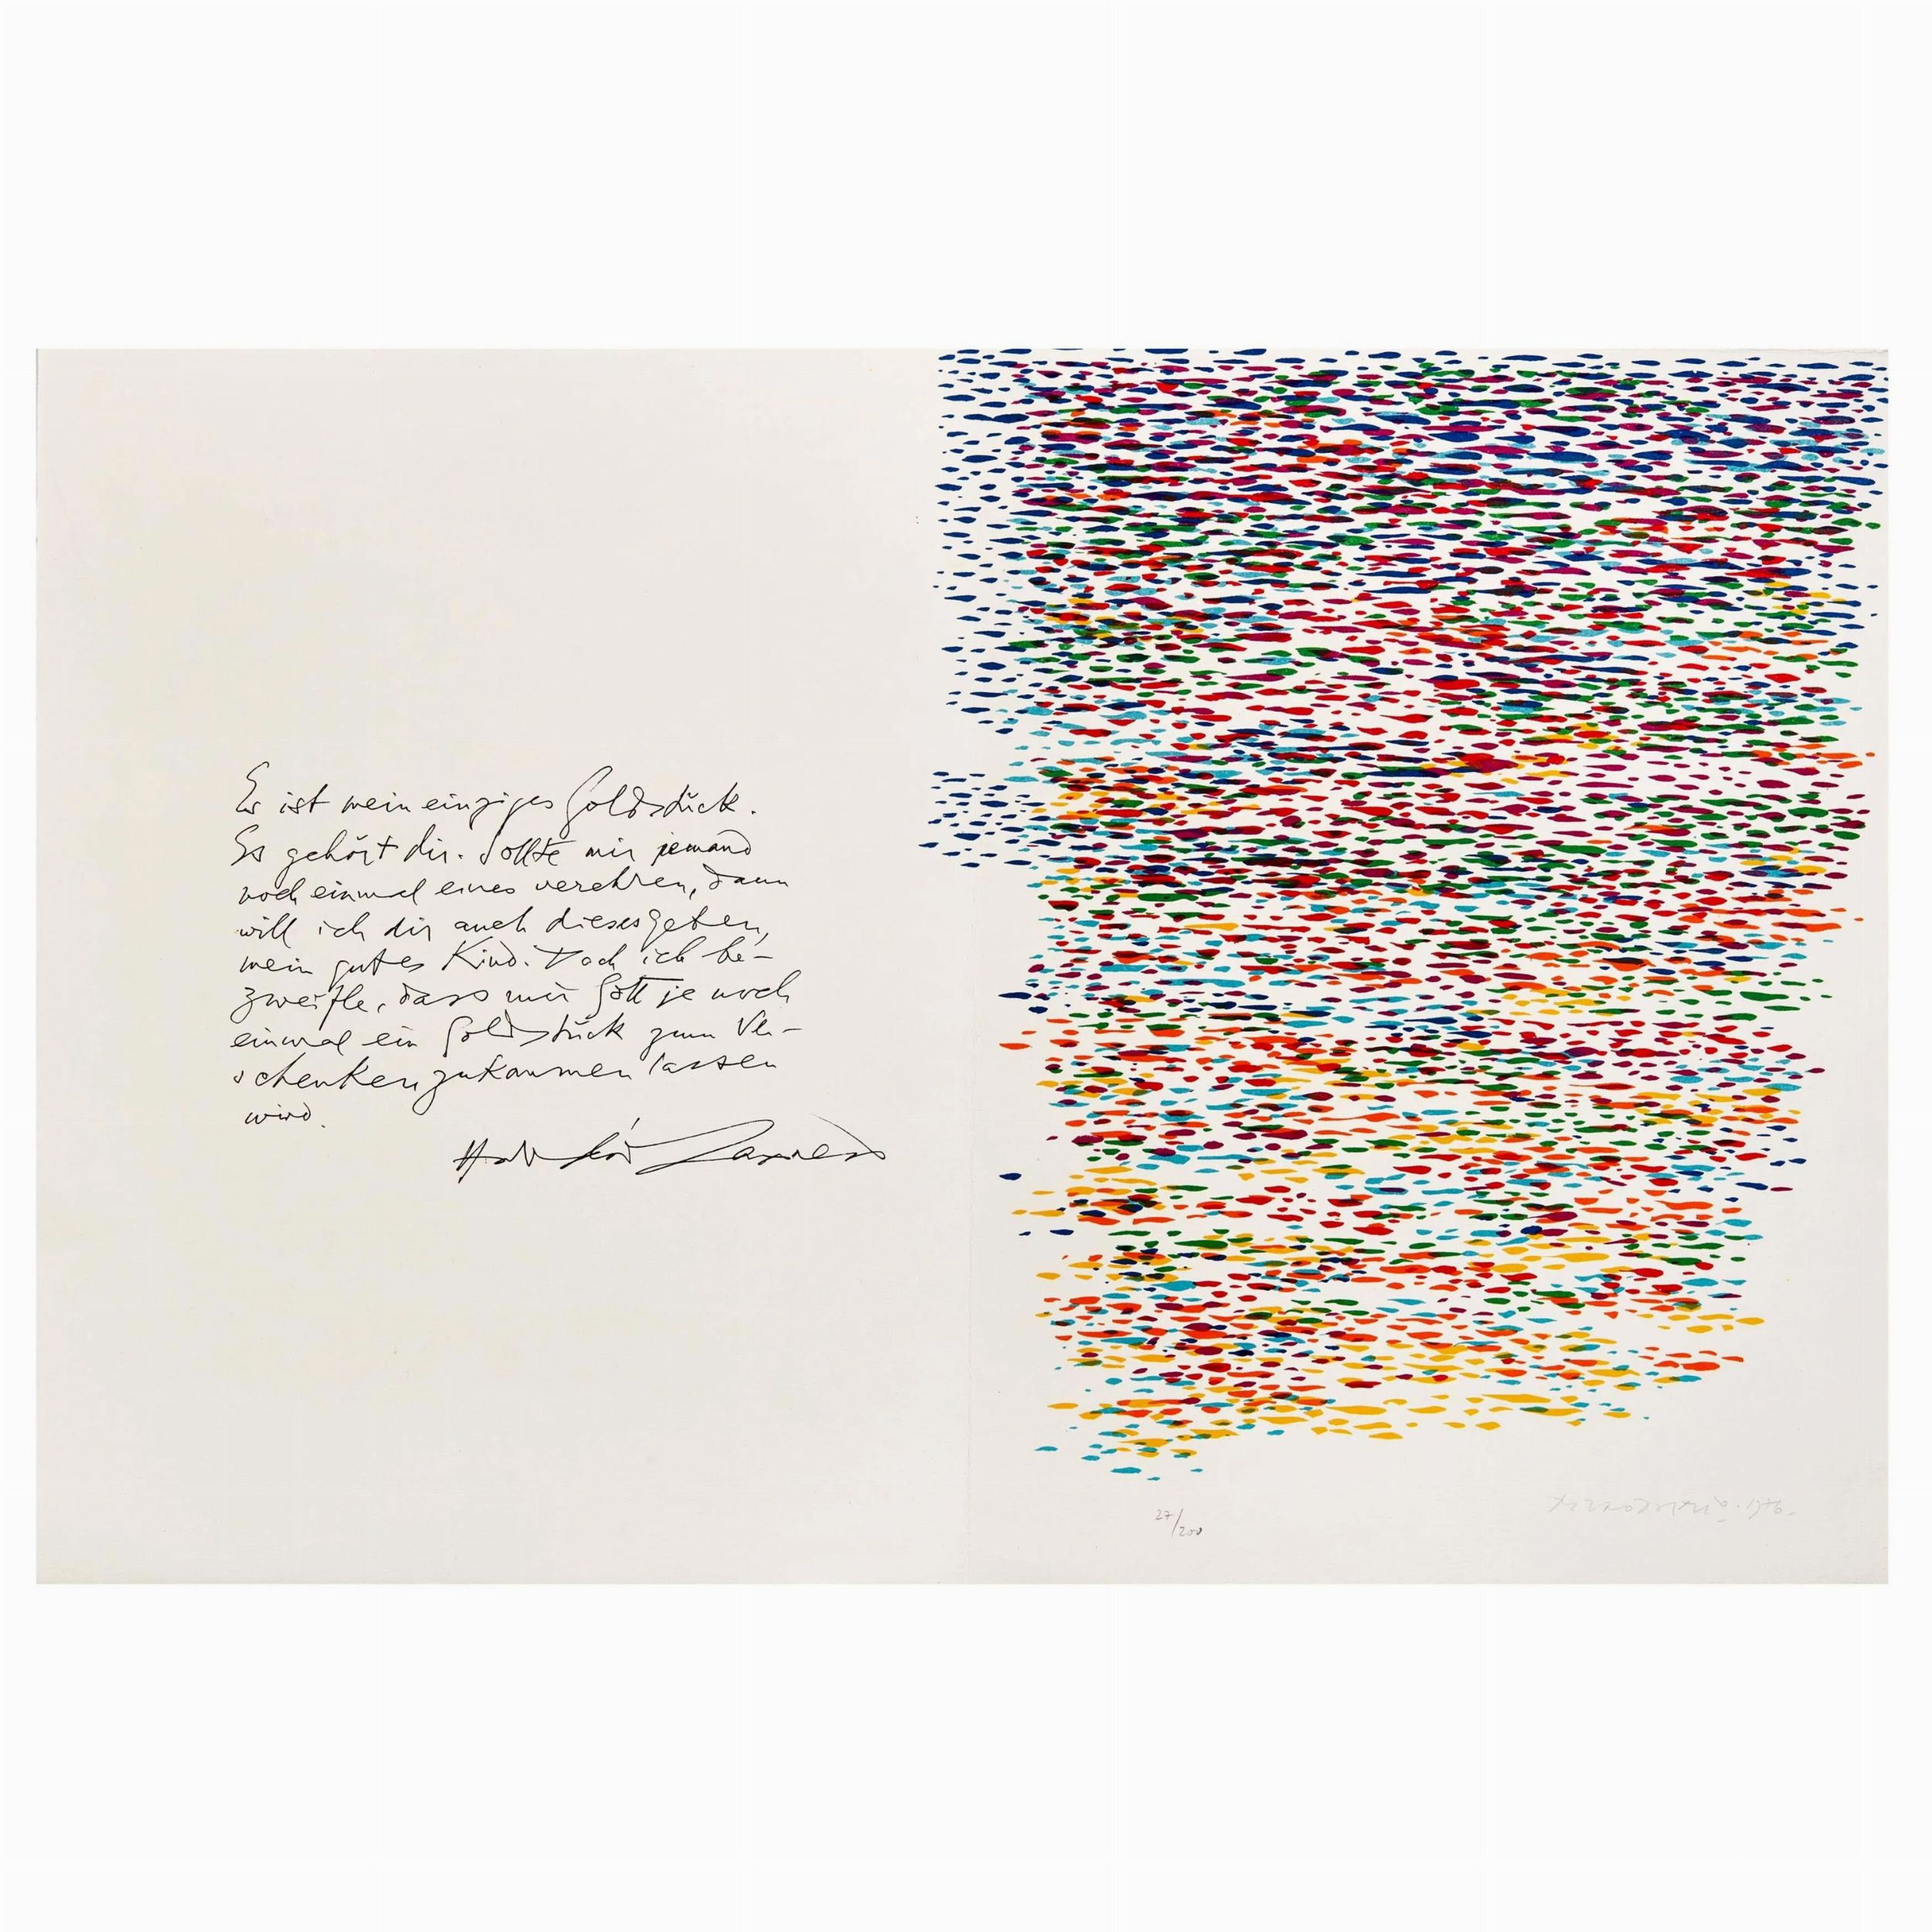 Es ist mein einziges Goldstück.
Es gehört dir. Sollte mir jemand
noch einmal eines verehren, dann
will ich dir auch dieses geben,
mein gutes Kind. Doch ich be-
zweifle, dass mir Gott je noch
einmal ein Goldstück zum Ver-
schenken zukommen lassen
wird.
27/200
1976.